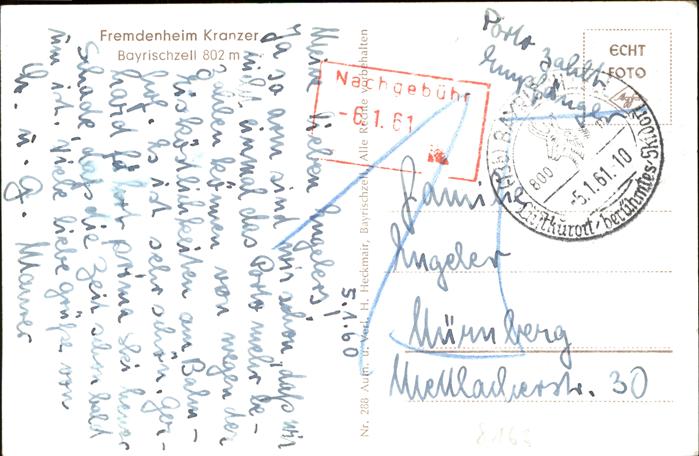 Fremdenheim Kranzer
Bayrischzell 802 m
Meine lieben Engelers!
5.1.60
Ja so arm sind wir schon, daß wir
nicht einmal das Porto mehr be-
zahlen können von wegen der
Köstlichkeiten am Bahn-
hof. Es ist sehr schön. Ger-
hard fährt prima Ski heuer
Schade daß die Zeit schon bald
um ist. Viele liebe Grüße von
Ch. u. G. Maurer
Nr. 288 Aufn. u. Verl. H. Heckmair, Bayrischzell. Alle Rechte vorbehalten
Nachgebühr
-9.1.61
Porto zahlt
Empfänger
ECHT
FOTO
Agfa
BAYRISCHZELL
800
-5.1.61.10
Luftkurort - berühmtes Skidorf
Familie
Engeler
Nürnberg
Mettlacherstr. 30